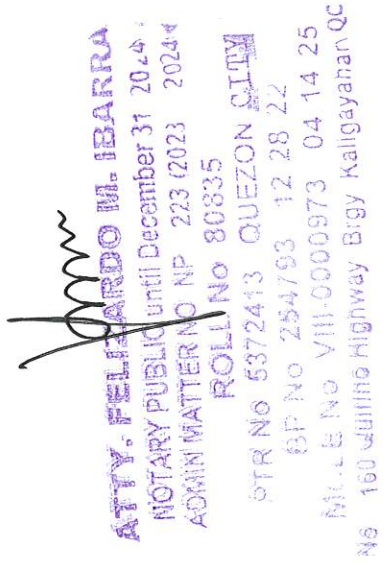 ATTY. FELIZARDO M. IBARRA
NOTARY PUBLIC until December 31 2024
ADMIN MATTER NO NP 223 (2023 2024
ROLL No 80835
PTR No 5372413 QUEZON CITY
BP No 254793 12 28 22
No VIII-0000973 04 14 25
No 160 Quirino Highway Brgy Kaligayahan QC